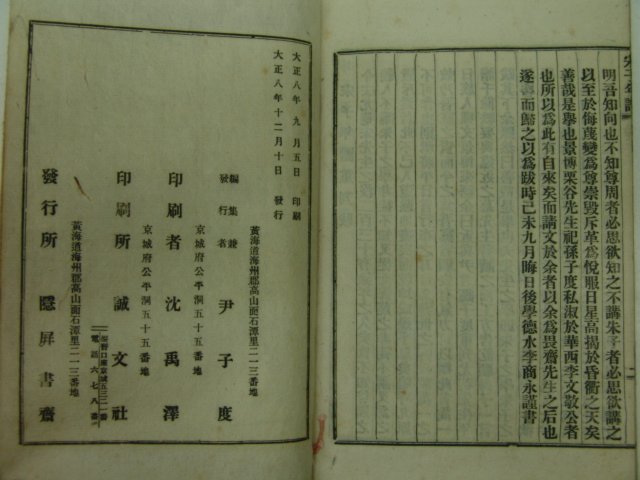 明吾知向也不知尊周者必思欲知之不講朱子者必思欲講之
以至於侮蔑變爲尊崇毀斥革爲悅服日星高揭於昏衢之天矣
善哉是擧也景博栗谷先生祀孫子度私淑於華西李文敬公者
也所以爲此有自來矣而請文於余者以余爲畏齋先生之后也
遂書而歸之以爲跋時己未九月晦日後學德水李商永謹書
大正八年九月五日 印刷
大正八年十二月十日 發行
黃海道海州郡高山面石潭里二一三番地
編集兼發行者 尹子度
京城府公平洞五十五番地
印刷者 沈禹澤
京城府公平洞五十五番地
印刷所 誠文社
電話六七八番
黃海道海州郡高山面石潭里二一三番地
發行所 隱屏書齋